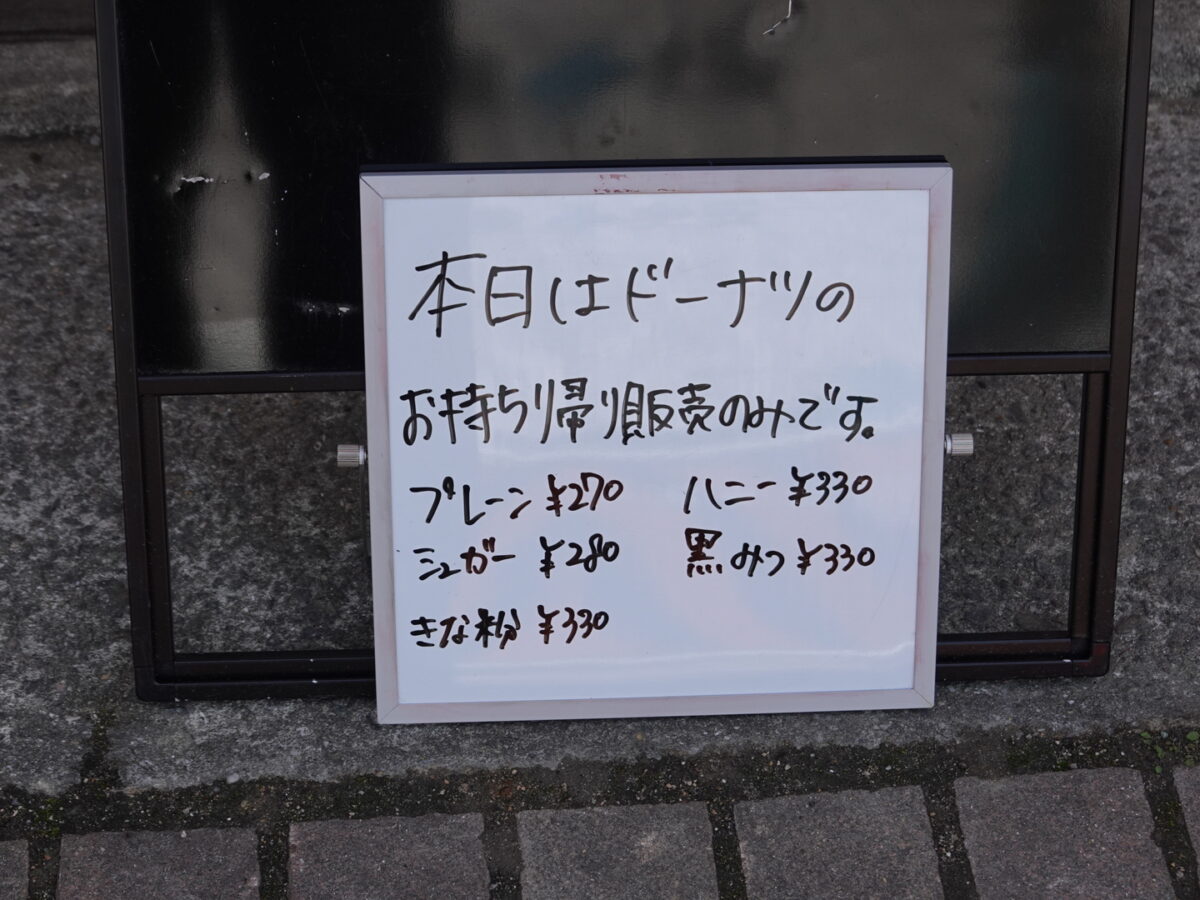 本日はドーナツの
お持ち帰り販売のみです。
プレーン ¥270 ハニー ¥330
シュガー ¥280 黒みつ ¥330
きな粉 ¥330